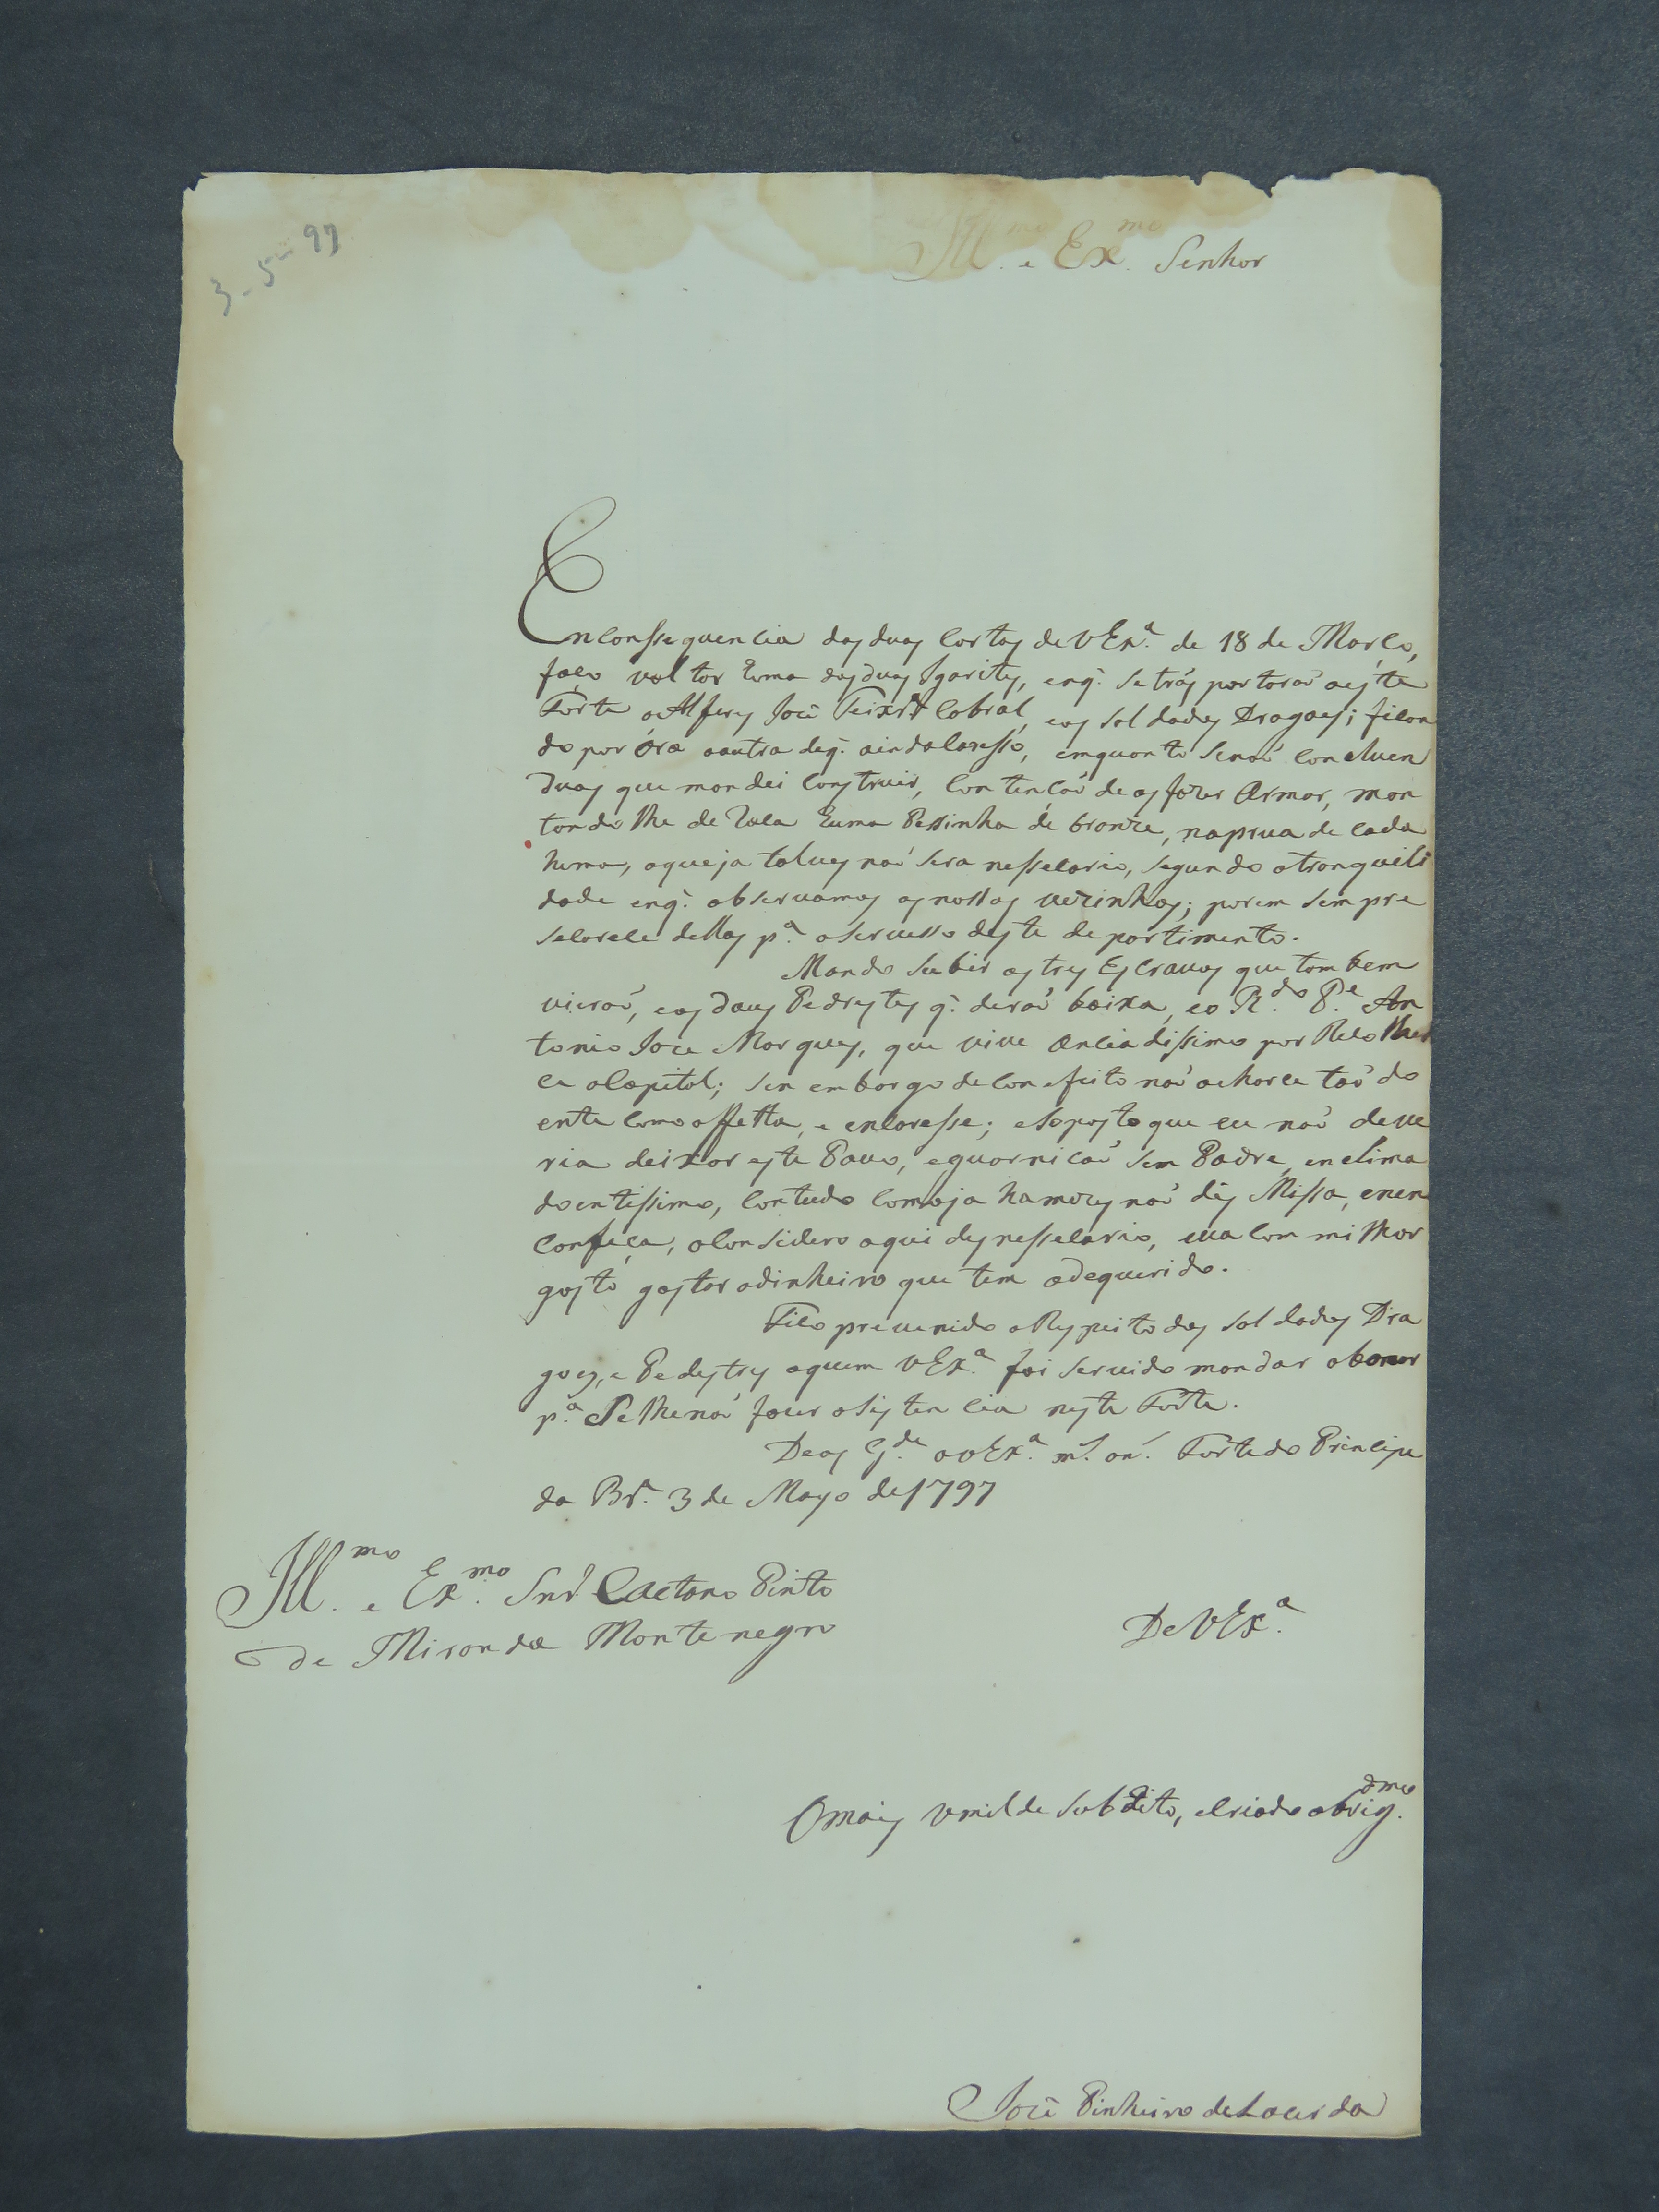 3-5-97
Ill.mo e Ex.mo Senhor
Em conssequencia das duas Cartas de VEx.a de 18 de Março,
faço voltar huma das duas Igarites, enq. se trásportarao aeste
Forte o Alferes Jozê Teixr.a Cabral, eos Soldados Dragoes; fican
do por óra aoutra deq. aindacaresso, emquanto senaó concluem
duas que mandei construir, com tençaó de as fazer Armar, mon
tando lhe de Roda huma Pessinha de bronze, naprua de cada
huma, oqueja talves naó sera nesselario, segundo atranquili
dade enq. observamos os nossos vezinhos; porem sempre
secarece dellas p.a oservisso deste departimento.
Mando subir os tres Escravos que tombem
vieraó, eos dous Pedrestes q. deraó baixa, eo R.do P.e An
tonio Joze Marques, que vive anciadissimo por Reco lher
ce aCapital; sen embargo decon efeito naó acharce taó do
ente como affetta, e encaresse; eSoposto que eu naó deve
ria deixar este Povo, eguarniçaó sem Padre, enclima
doentissimo, contudo comoja hamezes naó dis Missa, enen
Confeça, oConsidero aqui desnesselario, eva com milhor
gosto gastar odinheiro que tem adequerido.
Fico prevenido aRespeito dos Soldados Dra
goes, e Pedestres aquem VEx.a foi servido mandar abonar
p.a Selhenaó fazer asistencia neste Forte.
Deos G.de a VEx.a m.s an.s Forte do Principe
da Br.a 3 de Mayo de 1797
Ill.mo e Ex.mo Snr. Caetano Pinto
de Miranda Montenegro
De VEx.a
Omais Umilde Subdito, eCriado obrig.dmo
Jozê Pinheiro de Lacerda